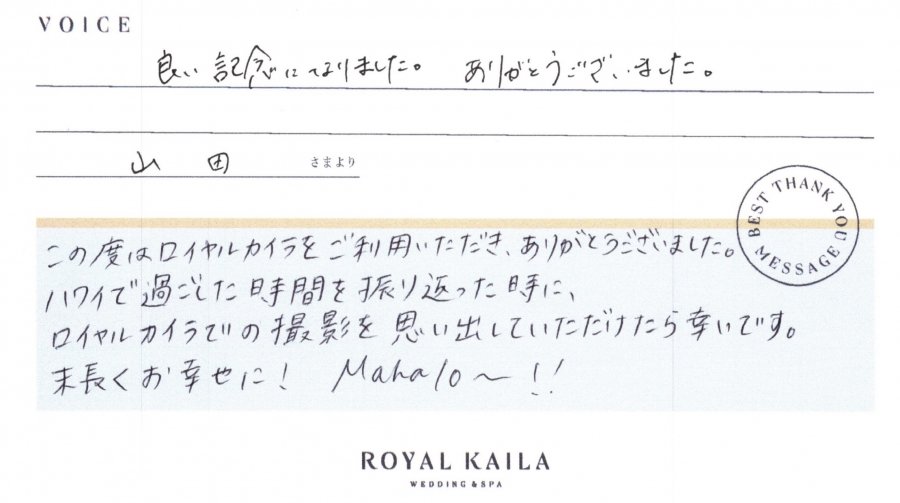 VOICE
良い記念になりました。 ありがとうございました。
山田 さまより
BEST THANK YOU MESSAGE
この度はロイヤルカイラをご利用いただき、ありがとうございました。
ハワイで過ごした時間を振り返った時に、
ロイヤルカイラでの撮影を思い出していただけたら幸いです。
末長くお幸せに! Mahalo〜!!
ROYAL KAILA
WEDDING & SPA